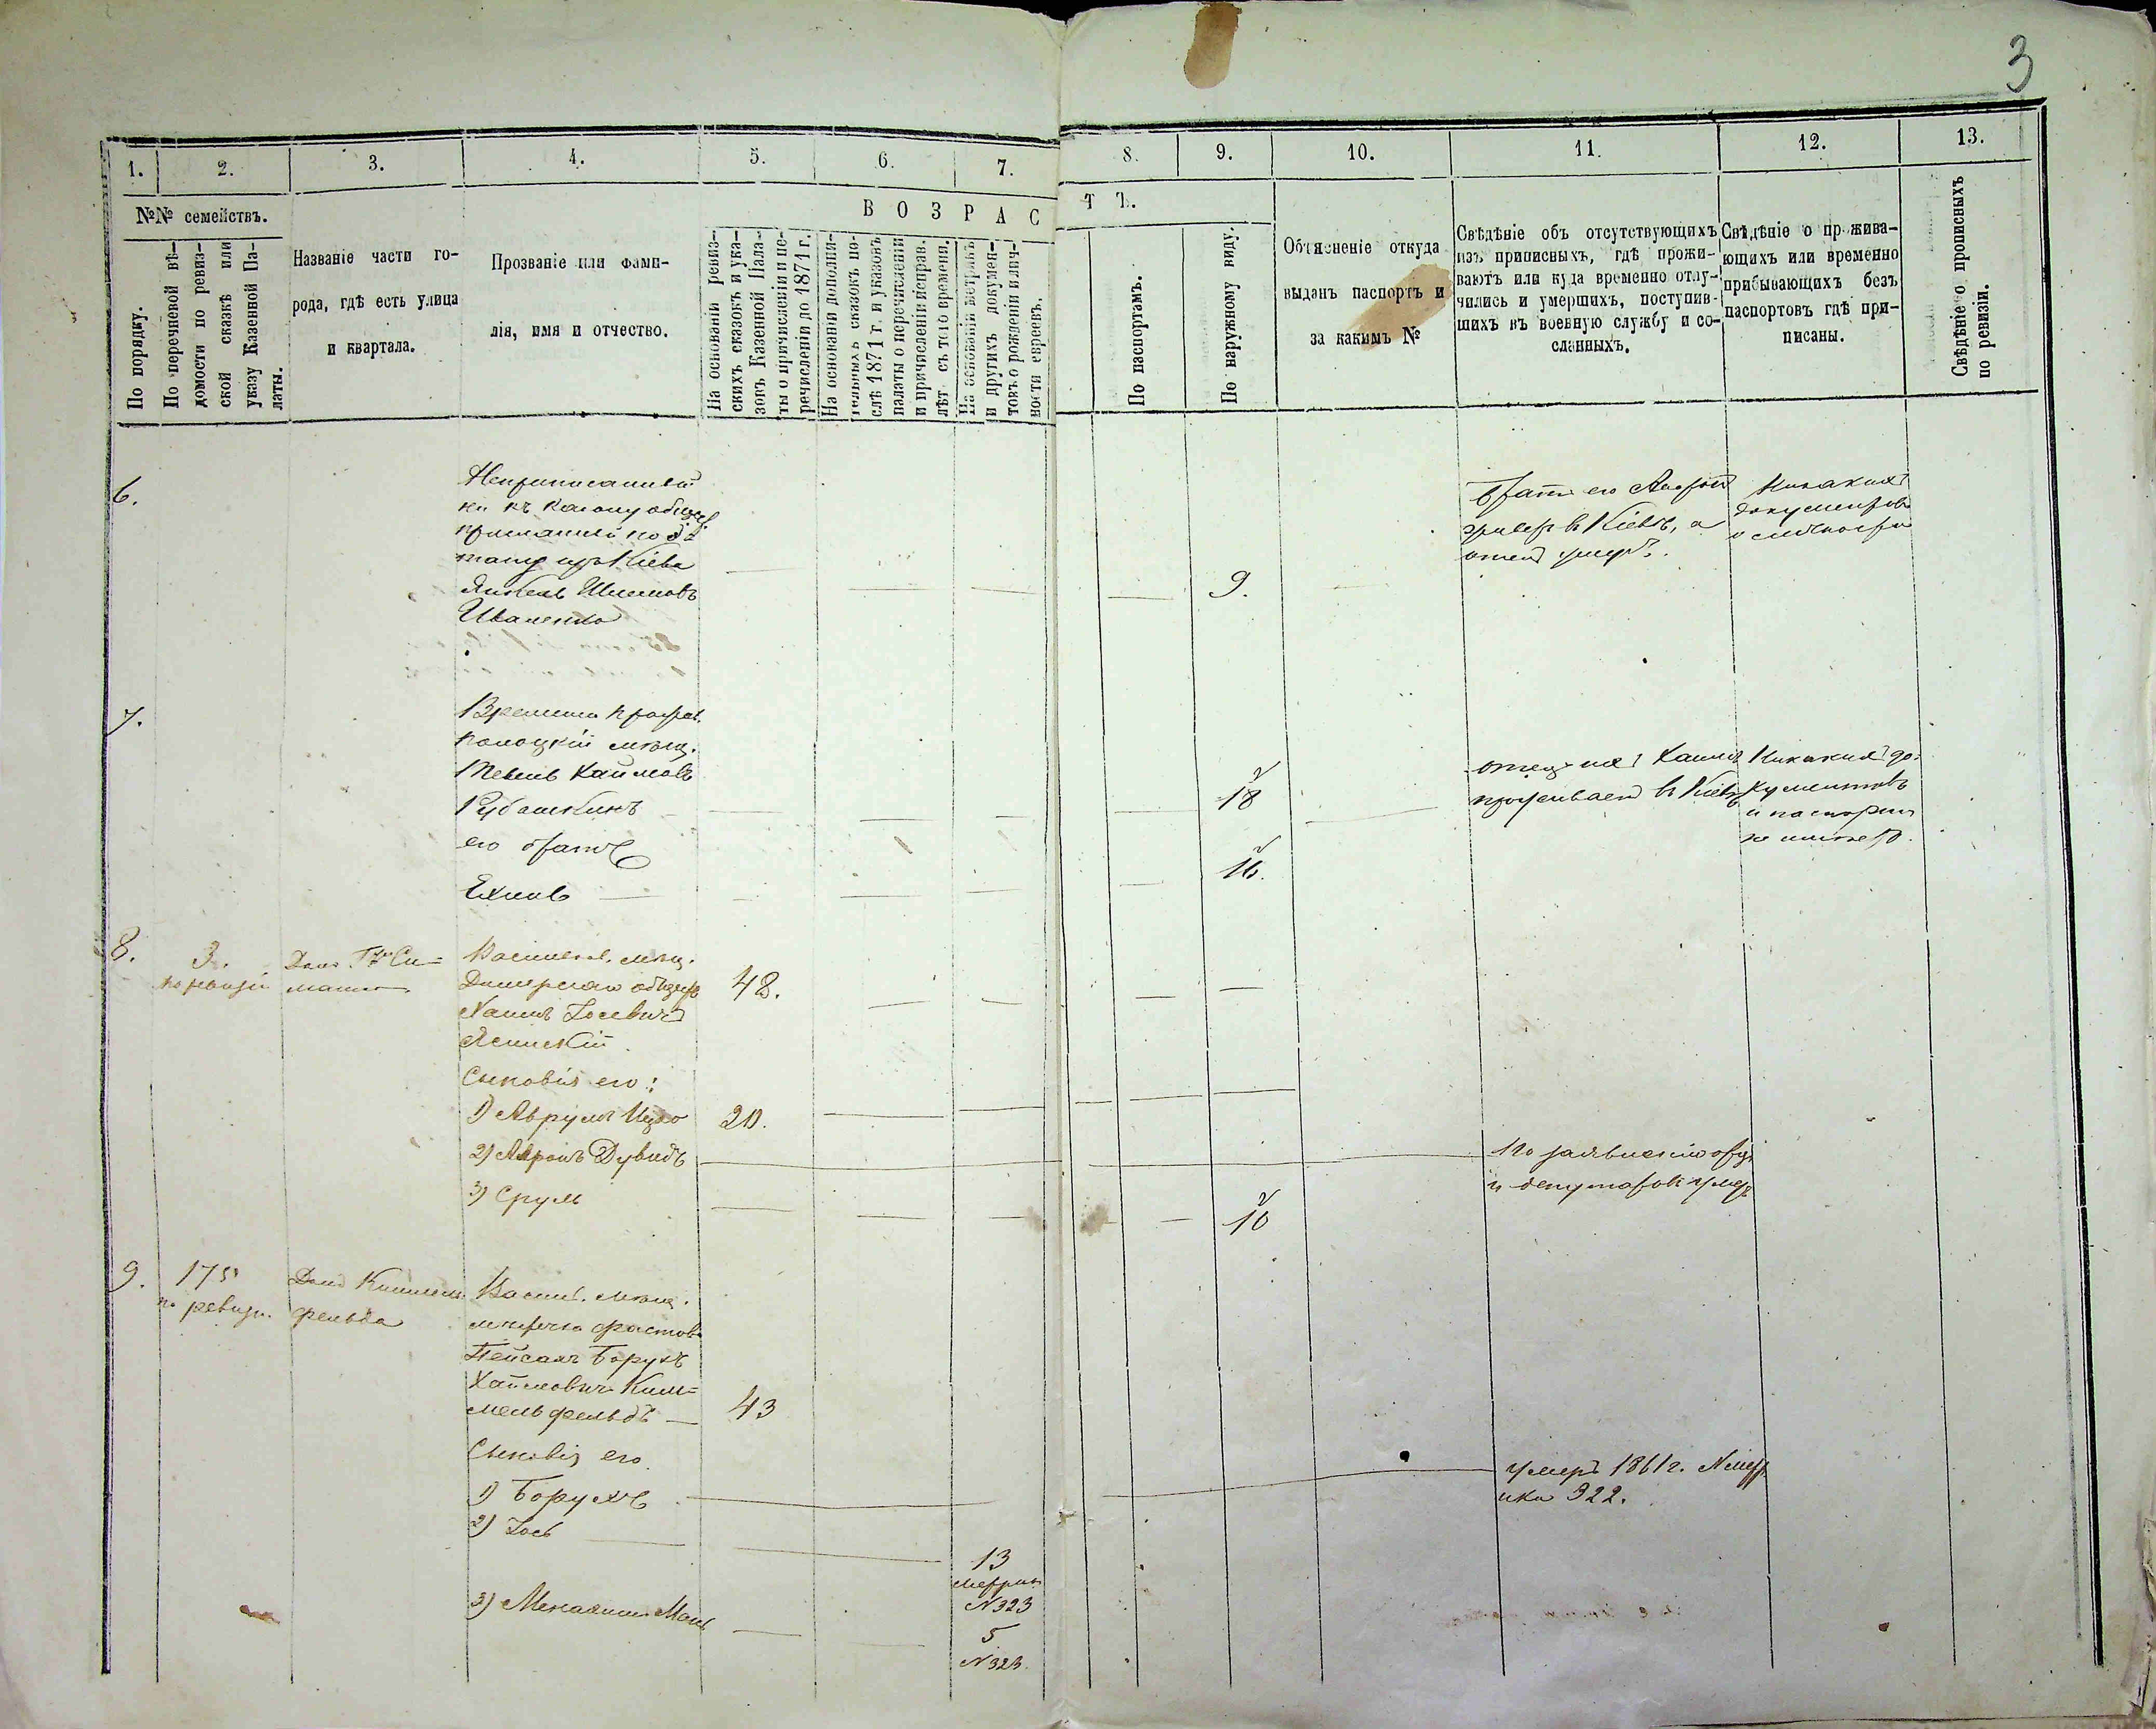 3
1. 2. 3. 4. 5. 6. 7. 8. 9. 10. 11. 12. 13.
№№ семействъ.
По порядку.
По перечневой вѣ-
домости по ревиз-
ской сказкѣ или
указу Казенной Па-
латы.
Названіе части го-
рода, гдѣ есть улица
и квартала.
Прозваніе или фами-
лія, имя и отчество.
ВОЗРАСТЪ.
На основаніи ревиз-
скихъ сказокъ и ука-
зовъ Казенной Пала-
ты о причисленіи и пе-
речисленіи до 1871 г.
На основаніи дополни-
тельныхъ сказокъ по-
слѣ 1871 г. и указовъ
палаты о перечисленіи
и причисленіи исправ.
лѣт съ того времени.
На основаніи метрикъ
и другихъ докумен-
товъ о рожденіи и лич-
ности евреевъ.
По паспортамъ.
По наружному виду.
Объясненіе откуда
выданъ паспортъ и
за какимъ №
Свѣдѣніе объ отсутствующихъ
изъ приписныхъ, гдѣ прожи-
ваютъ или куда временно отлу-
чились и умершихъ, поступив-
шихъ въ военную службу и со-
сланныхъ.
Свѣдѣніе о прожива-
ющихъ или временно
прибывающихъ безъ
паспортовъ гдѣ при-
писаны.
Свѣдѣніе о прописныхъ
по ревизіи.
6.
Неприписанный
ни къ какому общес.
присланный по э-
тапу изъ Кіева
Янкель Шлемовъ
Иваненко
9.
братъ его
живетъ въ Кіевѣ, а
отецъ умеръ.
Никакихъ
документовъ
о личности
7.
Временно прожив.
полоцкій мѣщ.
Хаимовъ
Рубашкинъ
18
отецъ ихъ Хаимъ
проживаетъ въ Кіевѣ
Никакихъ до-
кументовъ
и паспорта
не имѣетъ.
его братъ
16.
8.
3.
по ревизіи
Домъ
Васильков. мѣщ.
Дымерскаго общест.
Хаимъ Іосевичъ
Ясинскій.
48.
Сыновья его:
1) Аврумъ Ицко 20.
2) Ааронъ Дувидъ
По заявленію
и депутатовъ умеръ
3) Сруль
10
9.
175
по ревизи.
Домъ Киммель
фельда
Васил. мѣщ.
мѣстечка Фастова
Пейсахъ Борухъ
Хаймовичъ Ким=
мельфельдъ — 43
Сыновья его
1) Борухъ
умеръ 1861 г. № метр
ика 322.
2) Іось
13
метрик
№ 323
3) Менахимъ
5
№ 323.